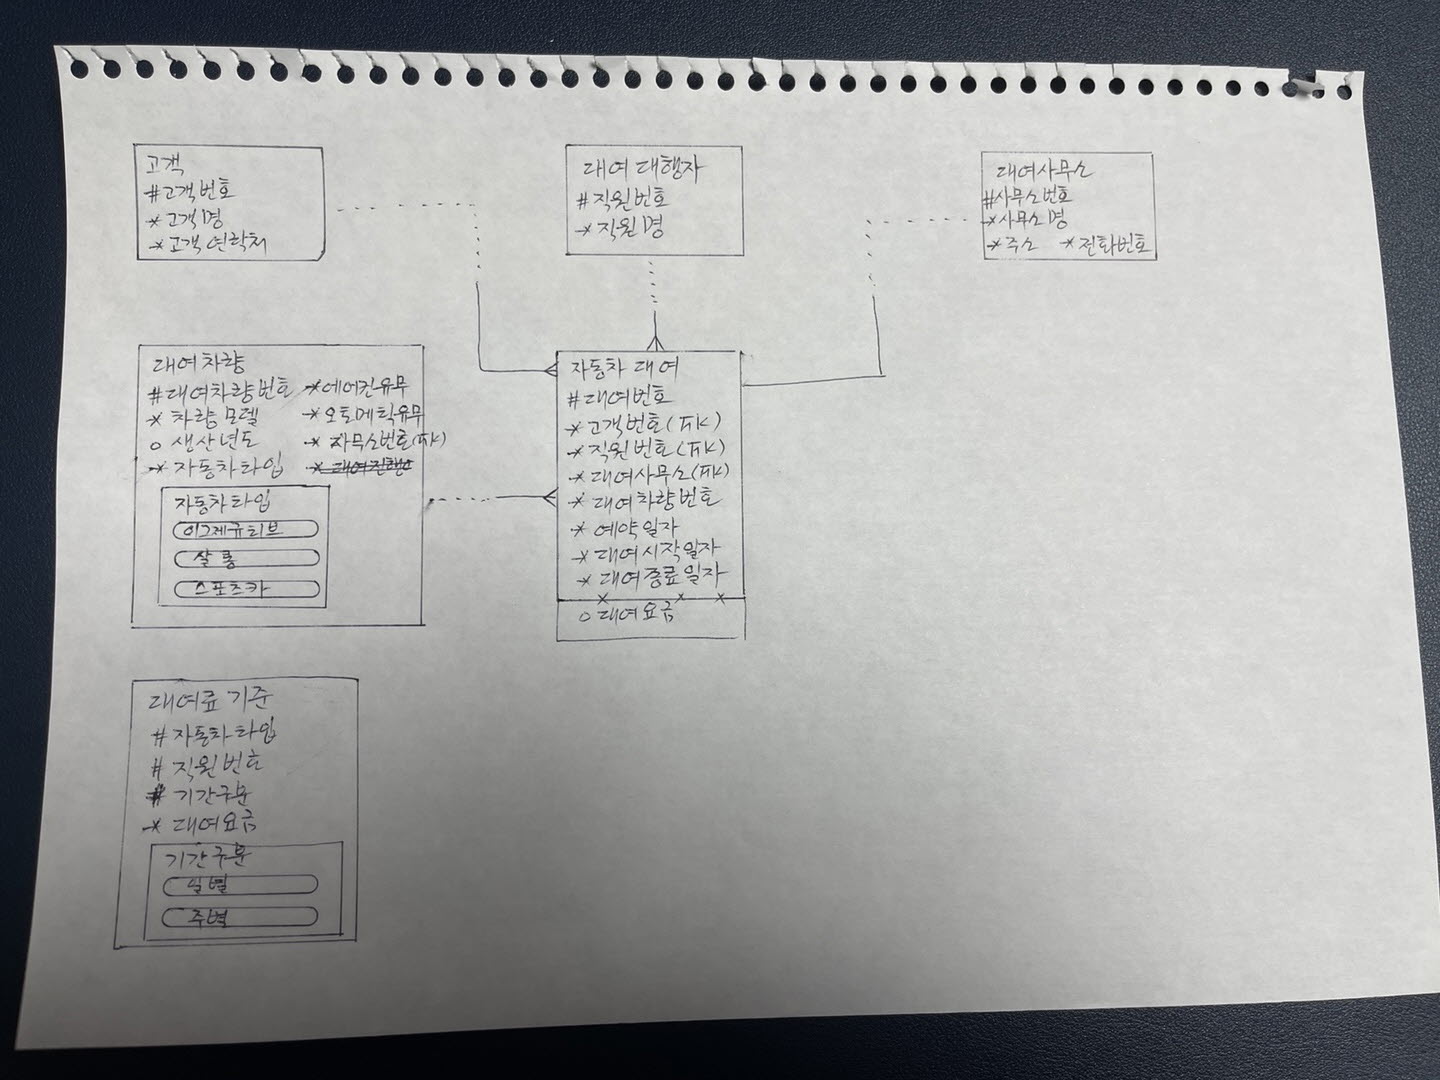 고객
#고객번호
*고객명
*고객연락처
대여 대행자
#직원번호
*직원명
대여사무소
#사무소번호
*사무소명
*주소 *전화번호
대여차량
#대여차량번호 *에어컨유무
*차량모델 *오토메틱유무
o 생산년도 *사무소번호(FK)
*자동차타입
자동차타입
이그제큐티브
살롱
스포츠카
자동차 대여
#대여번호
*고객번호(FK)
*직원번호(FK)
*대여사무소(FK)
*대여차량번호
*예약일자
*대여시작일자
*대여종료일자
o 대여요금
대여료 기준
#자동차타입
#직원번호
#기간구분
*대여요금
기간구분
일별
주별